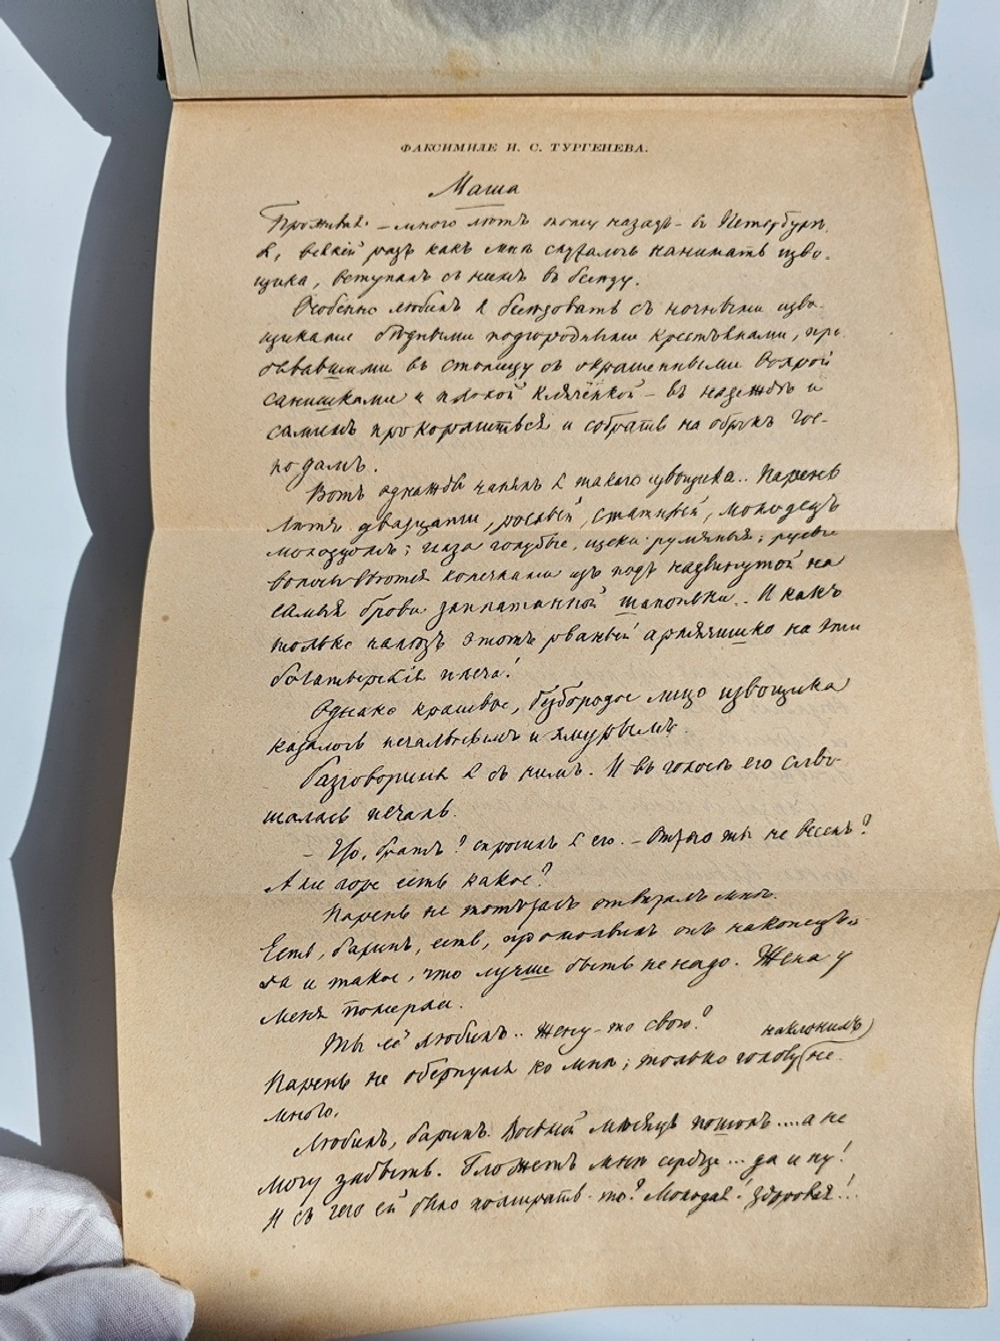 ФАКСИМИЛЕ И. С. ТУРГЕНЕВА.
Маша
Проживая – много лѣтъ тому назадъ – въ Петербургѣ,
я, всякiй разъ какъ мнѣ случалось нанимать изво-
щика, вступалъ съ нимъ въ бесѣду.
Особенно любилъ я бесѣдовать съ ночными изво-
щиками бѣдными подгородными крестьянами, при-
бывавшими въ столицу съ окрашенными вохрой
санишками и плохой клячёнкой – въ надеждѣ и
самимъ прокормиться и собрать на оброкъ гос-
подамъ.
Вотъ однажды нанялъ я такого извощика.. Парень
лѣтъ двадцати, рослый, статный, молодецъ
молодцомъ; глаза голубые, щеки румяныя; русые
волосы вьются колечками изъ подъ надвинутой на
самыя брови заплатанной шапоньки.. И какъ
только налѣзъ этотъ рваный армячишко на эти
богатырскiя плеча!
Однако красивое, безбородое лицо извощика
казалось печальнымъ и хмурымъ.
Разговорился я съ нимъ. И въ голосѣ его слы-
шалась печаль.
– Что, братъ? спросилъ я его. – Отчего ты не веселъ?
Али горе есть какое?
Парень не тотчасъ отвѣчалъ мнѣ.
Есть, баринъ, есть, промолвилъ онъ наконецъ..
да и такое, что лучше быть не надо. Жена у
меня померла.
Ты её любилъ.. жену-то свою?
наклонилъ
Парень не обернулся ко мнѣ; только голову не-
много.
Любилъ, баринъ. Восьмой мѣсяцъ пошолъ.... а не
могу забыть. Гложетъ мнѣ сердце... да и ну!
И съ чего ей было помирать-то? Молодая! здоровая!..